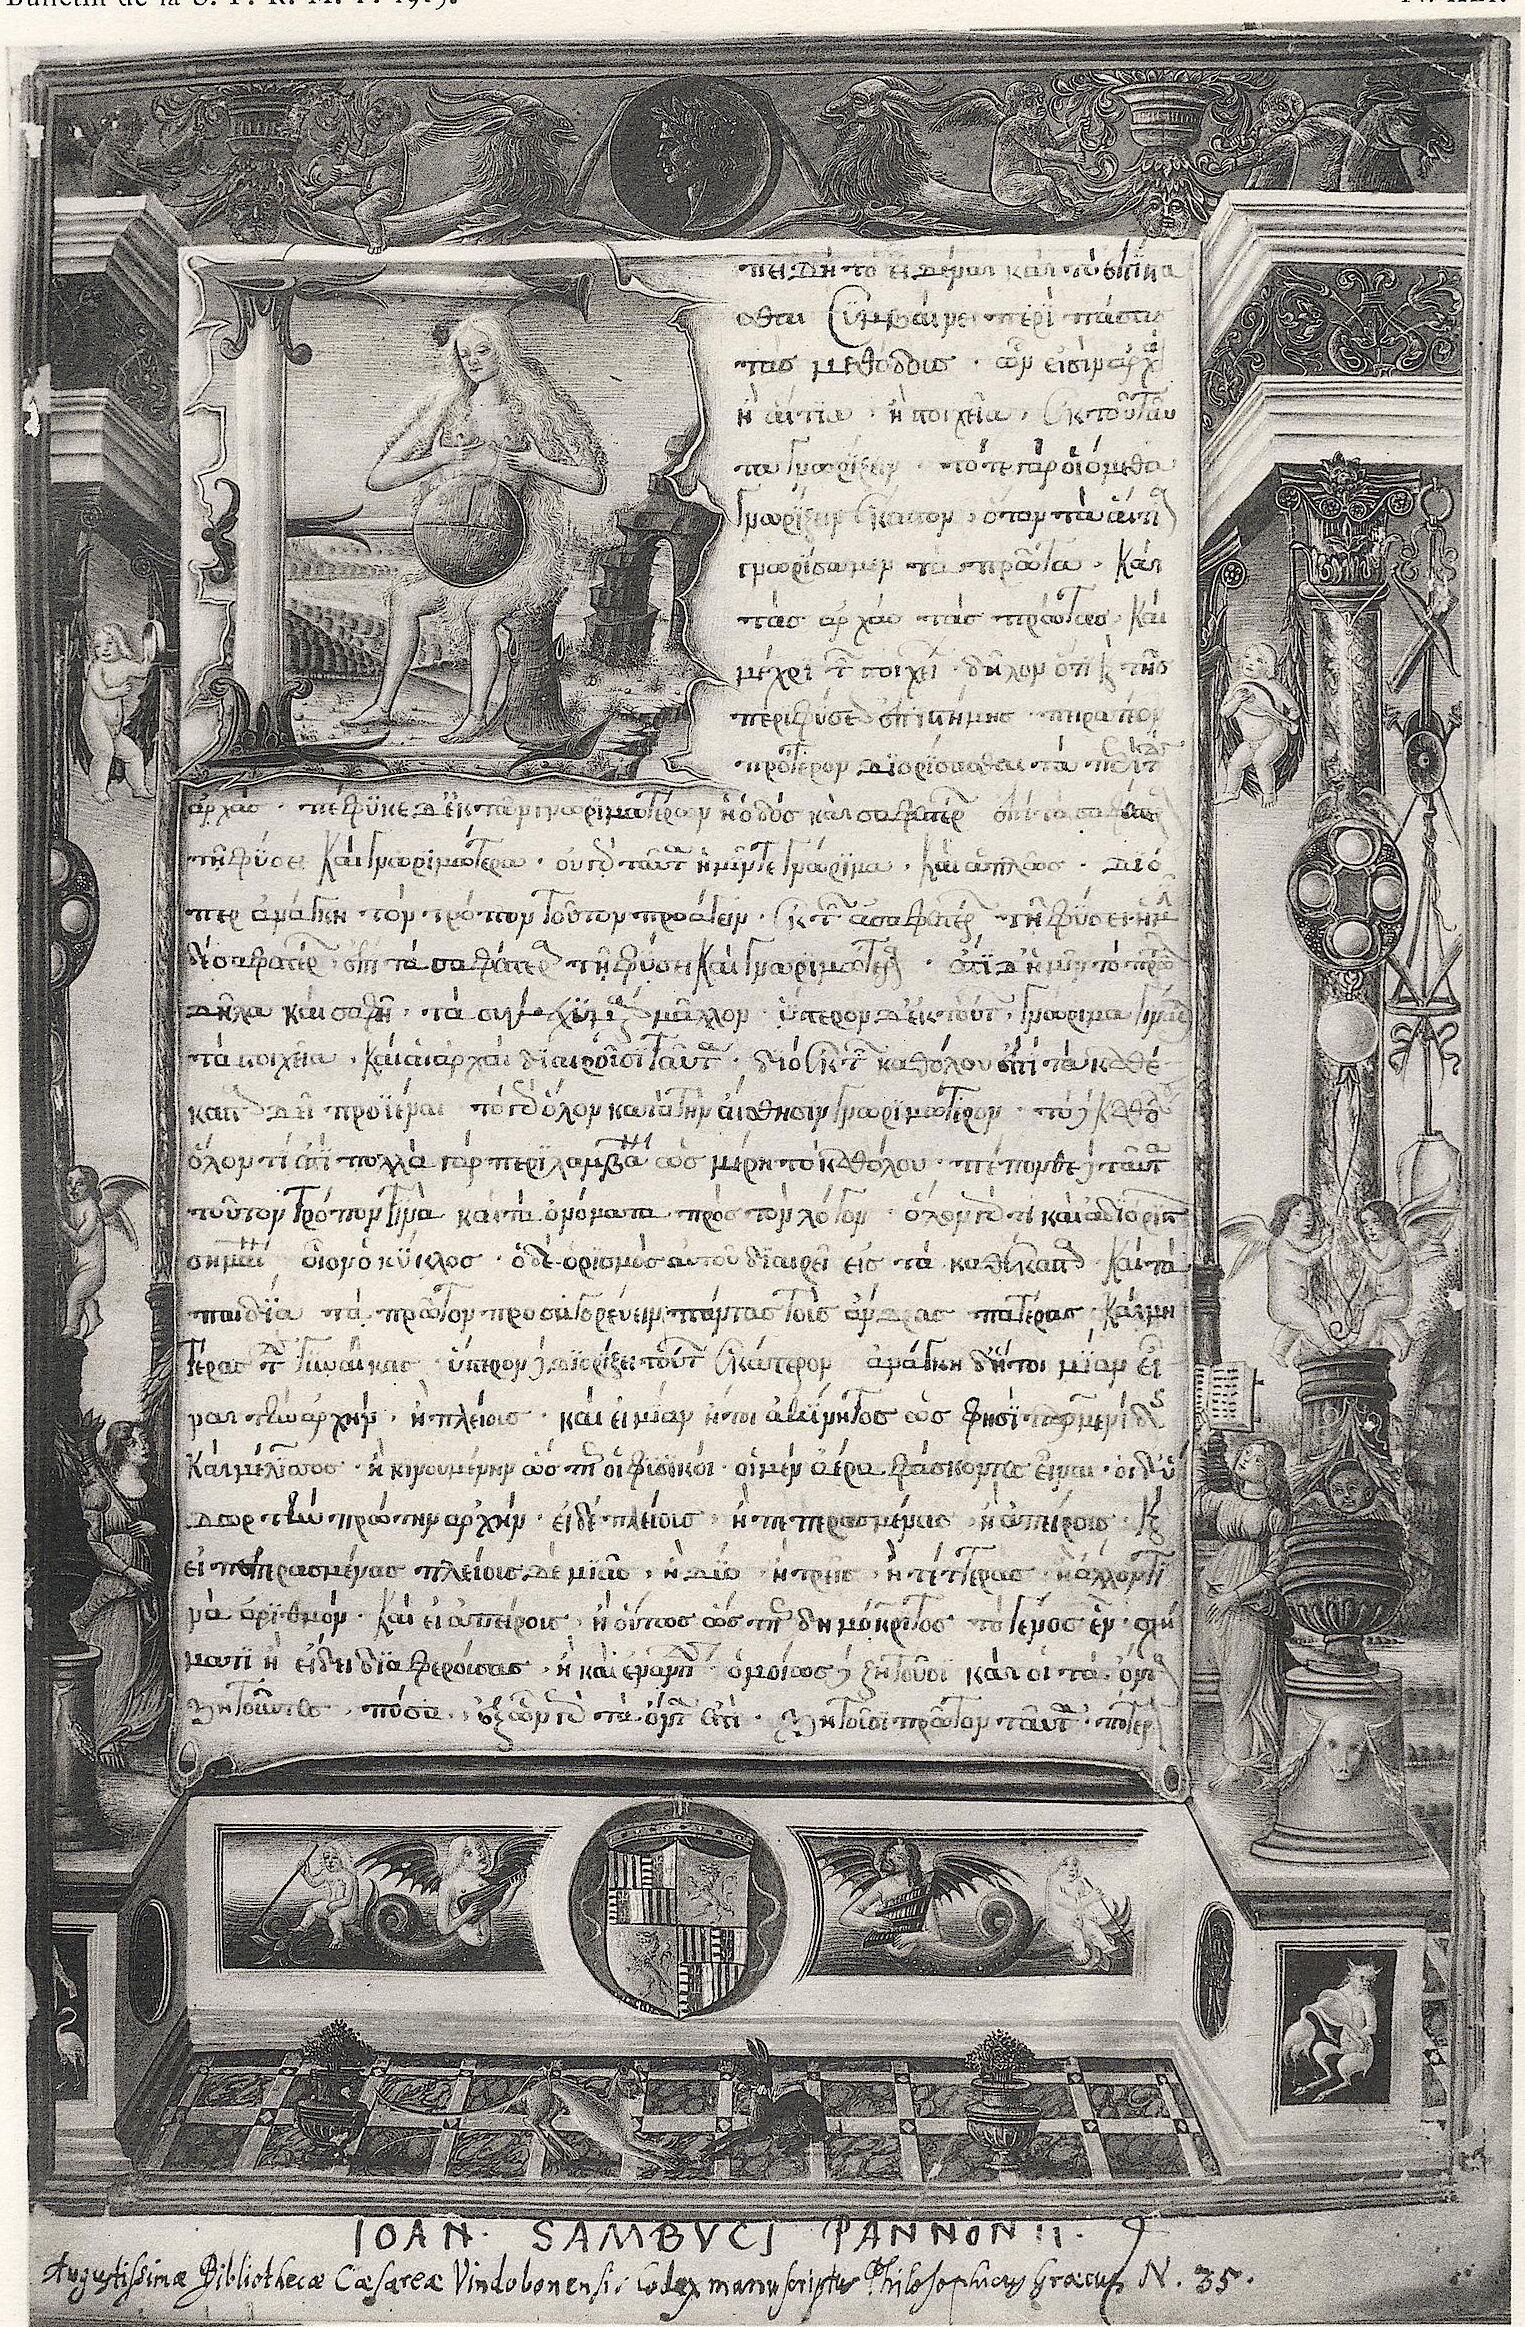 Bulletin de la S. F. R. M. P.
πειδὴ τὸ εἰδέναι καὶ τὸ ἐπίστα
σθαι συμβαίνει περὶ πάσας
τὰς μεθόδους · ὧν εἰσὶν ἀρχ
ἢ αἴτια · ἢ στοιχεῖα · ἐκ τοῦ ταῦ
τα γνωρίζειν · τότε γὰρ οἰόμεθα
γνωρίζειν ἕκαστον · ὅταν τὰ αἴτι
γνωρίσωμεν τὰ πρῶτα · καὶ
τὰς ἀρχὰς τὰς πρώτας · καὶ
μέχρι τ στοιχεί · δῆλον ὅτι κ τῆς
περὶ φύσεως ἐπιστήμης · πειρατέον
πρότερον διορίσασθαι τὰ π
ἀρχάς · πέφυκε δ' ἐκ τῶν γνωριμωτέρων ἡ ὁδὸς καὶ σαφεστέρ ἐπὶ τὰ σαφέστερ
τῇ φύσει καὶ γνωριμώτερα · οὐ γ ταῦτ ἡμῖν τε γνώριμα · καὶ ἁπλῶς · διό
περ ἀνάγκη τὸν τρόπον τοῦτον προάγειν · ἐκ τ ἀσαφεστέρ τῇ φύσει ἡμ
δὲ σαφεστέρ ἐπὶ τὰ σαφέστερ τῇ φύσει καὶ γνωριμώτερ · ἔστι δ' ἡμῖν τὸ πρῶτ
δῆλα καὶ σαφῆ · τὰ συγκεχυμ μᾶλλον · ὕστερον δ' ἐκ τούτ · γνώριμα γίνε
τὰ στοιχεῖα · καὶ αἱ ἀρχαὶ διαιροῦσι ταῦτ · διὸ ἐκ τ καθόλου ἐπὶ τὰ καθέ
καστ δεῖ προϊέναι τὸ γ ὅλον κατὰ τὴν αἴσθησιν γνωριμώτερον · τὸ καθό
ὅλον τί ἐστι πολλὰ γὰρ περιλαμβά ὡς μέρη τὸ καθόλου · πέπονθε ταῦτ
τοῦτον τρόπον τινὰ καὶ τὰ ὀνόματα πρὸς τὸν λόγον · ὅλον γ τι καὶ ἀδιορίστ
σημαί οἷον ὁ κύκλος · ὁ δὲ ὁρισμὸς αὐτοῦ διαιρεῖ εἰς τὰ καθέκαστ · καὶ τὰ
παιδία τὰ πρῶτον προσαγορεύειν πάντας τοὺς ἄνδρας πατέρας · καὶ μη
τέρας τ γυναῖκας · ὕστερον διορίζει τούτ ἑκάτερον ἀνάγκη δ' ἤτοι μίαν εἶ
ναι τὴν ἀρχήν · ἢ πλείους · καὶ εἰ μίαν ἤτοι ἀκίνητος ὡς φησὶ παρμενίδ
καὶ μέλισσος · ἢ κινουμένην ὡς π οἱ φυσικοί · οἱ μὲν ἀέρα φάσκοντες εἶναι · οἱ δ' ὕ
δωρ τὴν πρώτην ἀρχήν · εἰ δὲ πλείους · ἢ πεπερασμένας · ἢ ἀπείρους · κ
εἰ πεπερασμένας πλείους δὲ μιᾶς · ἢ δύο · ἢ τρεῖς · ἢ τέτταρας · ἢ ἄλλον τι
νὰ ἀριθμόν · καὶ εἰ ἀπείρους · ἢ οὕτως ὡς π δημόκριτος τὸ γένος ἓν · σχή
ματι ἢ εἴδει διαφερούσας · ἢ καὶ ἐναντ ὁμοίως ζητοῦσι καὶ οἱ τὰ ὄντ
ζητοῦντες · πόσα · ἐξ ὧν γ τὰ ὄντ ἐστὶ · ζητοῦσι πρῶτον ταῦτ · πότερ
IOAN. SAMBVCI PANNONII.
Augustissimæ Bibliothecæ Cæsareæ Vindobonensis Codex manuscriptus Philosophicus Græcus N. 35.